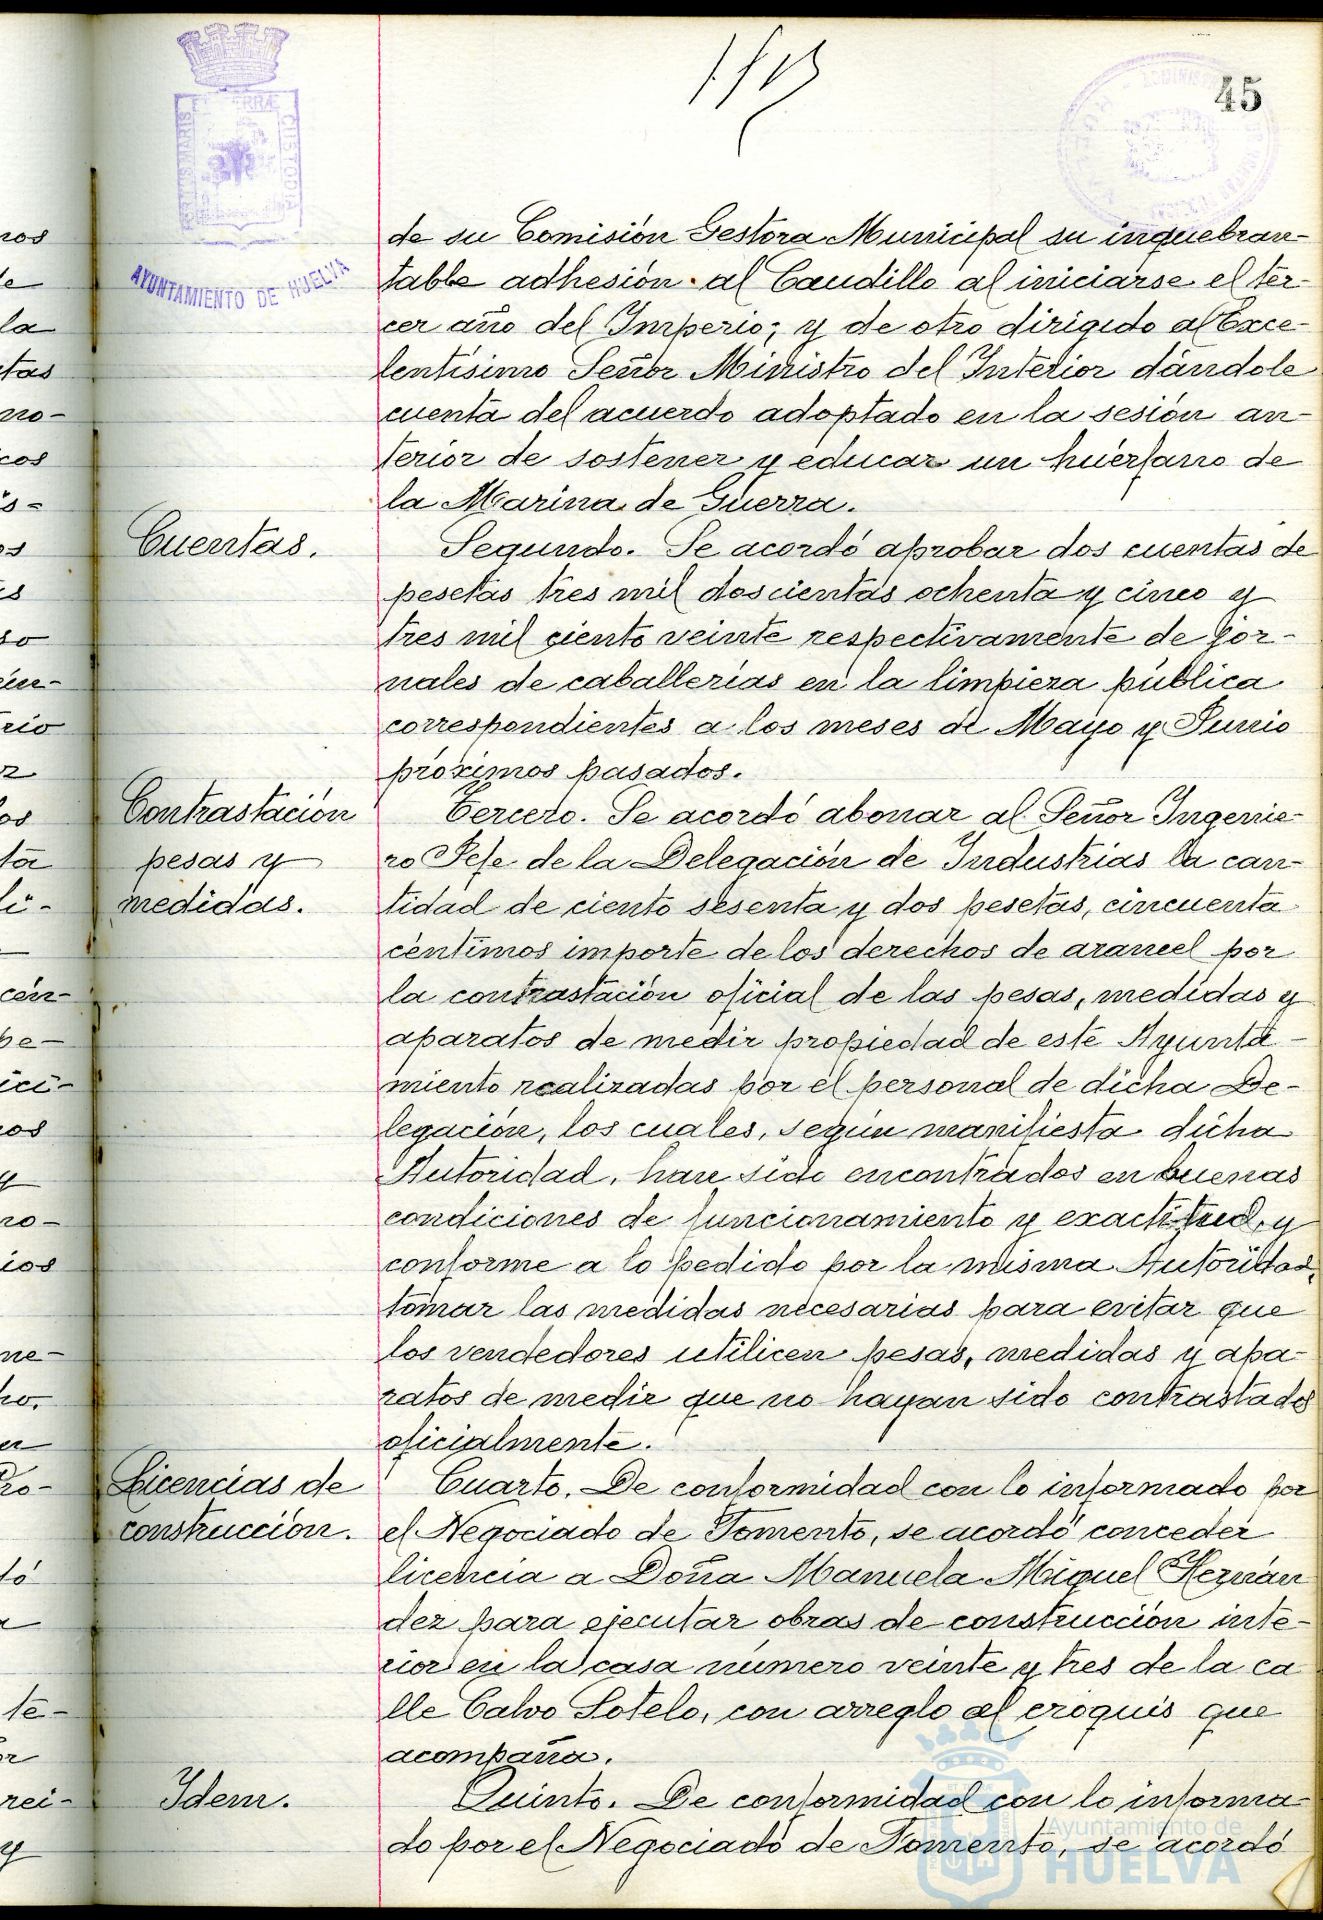 45
PORTUS MARIS ET TERRÆ CUSTODIA
AYUNTAMIENTO DE HUELVA
de su Comisión Gestora Municipal su inquebran-
table adhesión al Caudillo al iniciarse el ter-
cer año del Imperio; y de otro dirigido al Exce-
lentísimo Señor Ministro del Interior dándole
cuenta del acuerdo adoptado en la sesión an-
terior de sostener y educar un huérfano de
la Marina de Guerra.
Cuentas.
Segundo. Se acordó aprobar dos cuentas de
pesetas tres mil doscientas ochenta y cinco y
tres mil ciento veinte respectivamente de jor-
nales de caballerías en la limpieza pública
correspondientes a los meses de Mayo y Junio
próximos pasados.
Contrastación
pesas y
medidas.
Tercero. Se acordó abonar al Señor Ingenie-
ro Jefe de la Delegación de Industrias la can-
tidad de ciento sesenta y dos pesetas, cincuenta
céntimos importe de los derechos de arancel por
la contrastación oficial de las pesas, medidas y
aparatos de medir propiedad de este Ayunta-
miento realizadas por el personal de dicha De-
legación, los cuales, según manifiesta dicha
Autoridad, han sido encontrados en buenas
condiciones de funcionamiento y exactitud, y
conforme a lo pedido por la misma Autoridad,
tomar las medidas necesarias para evitar que
los vendedores utilicen pesas, medidas y apa-
ratos de medir que no hayan sido contrastados
oficialmente.
Licencias de
construcción.
Cuarto. De conformidad con lo informado por
el Negociado de Fomento, se acordó conceder
licencia a Doña Manuela Miguel Hernán
dez para ejecutar obras de construcción inte-
rior en la casa número veinte y tres de la ca
lle Calvo Sotelo, con arreglo al croquis que
acompaña.
Idem.
Quinto. De conformidad con lo informa-
do por el Negociado de Fomento, se acordó
Ayuntamiento de
HUELVA